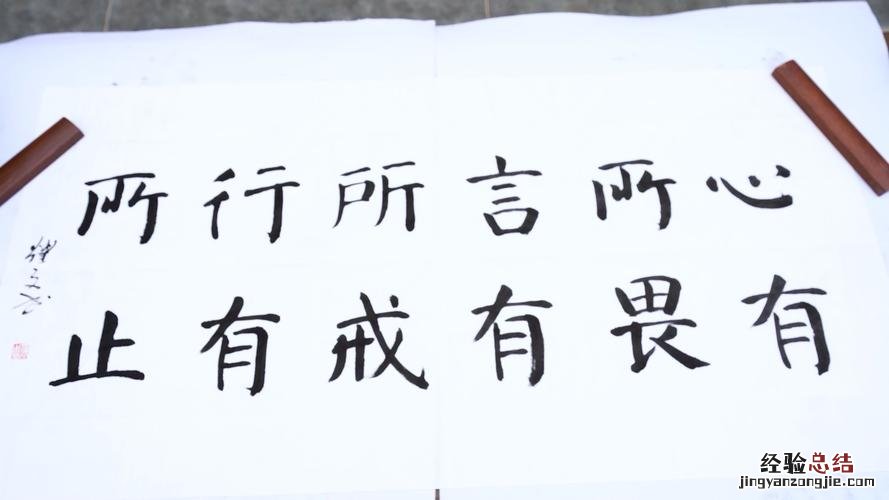 心有
所畏
言有
所戒
行有
所止
经验总结
jingyanzongjie.com